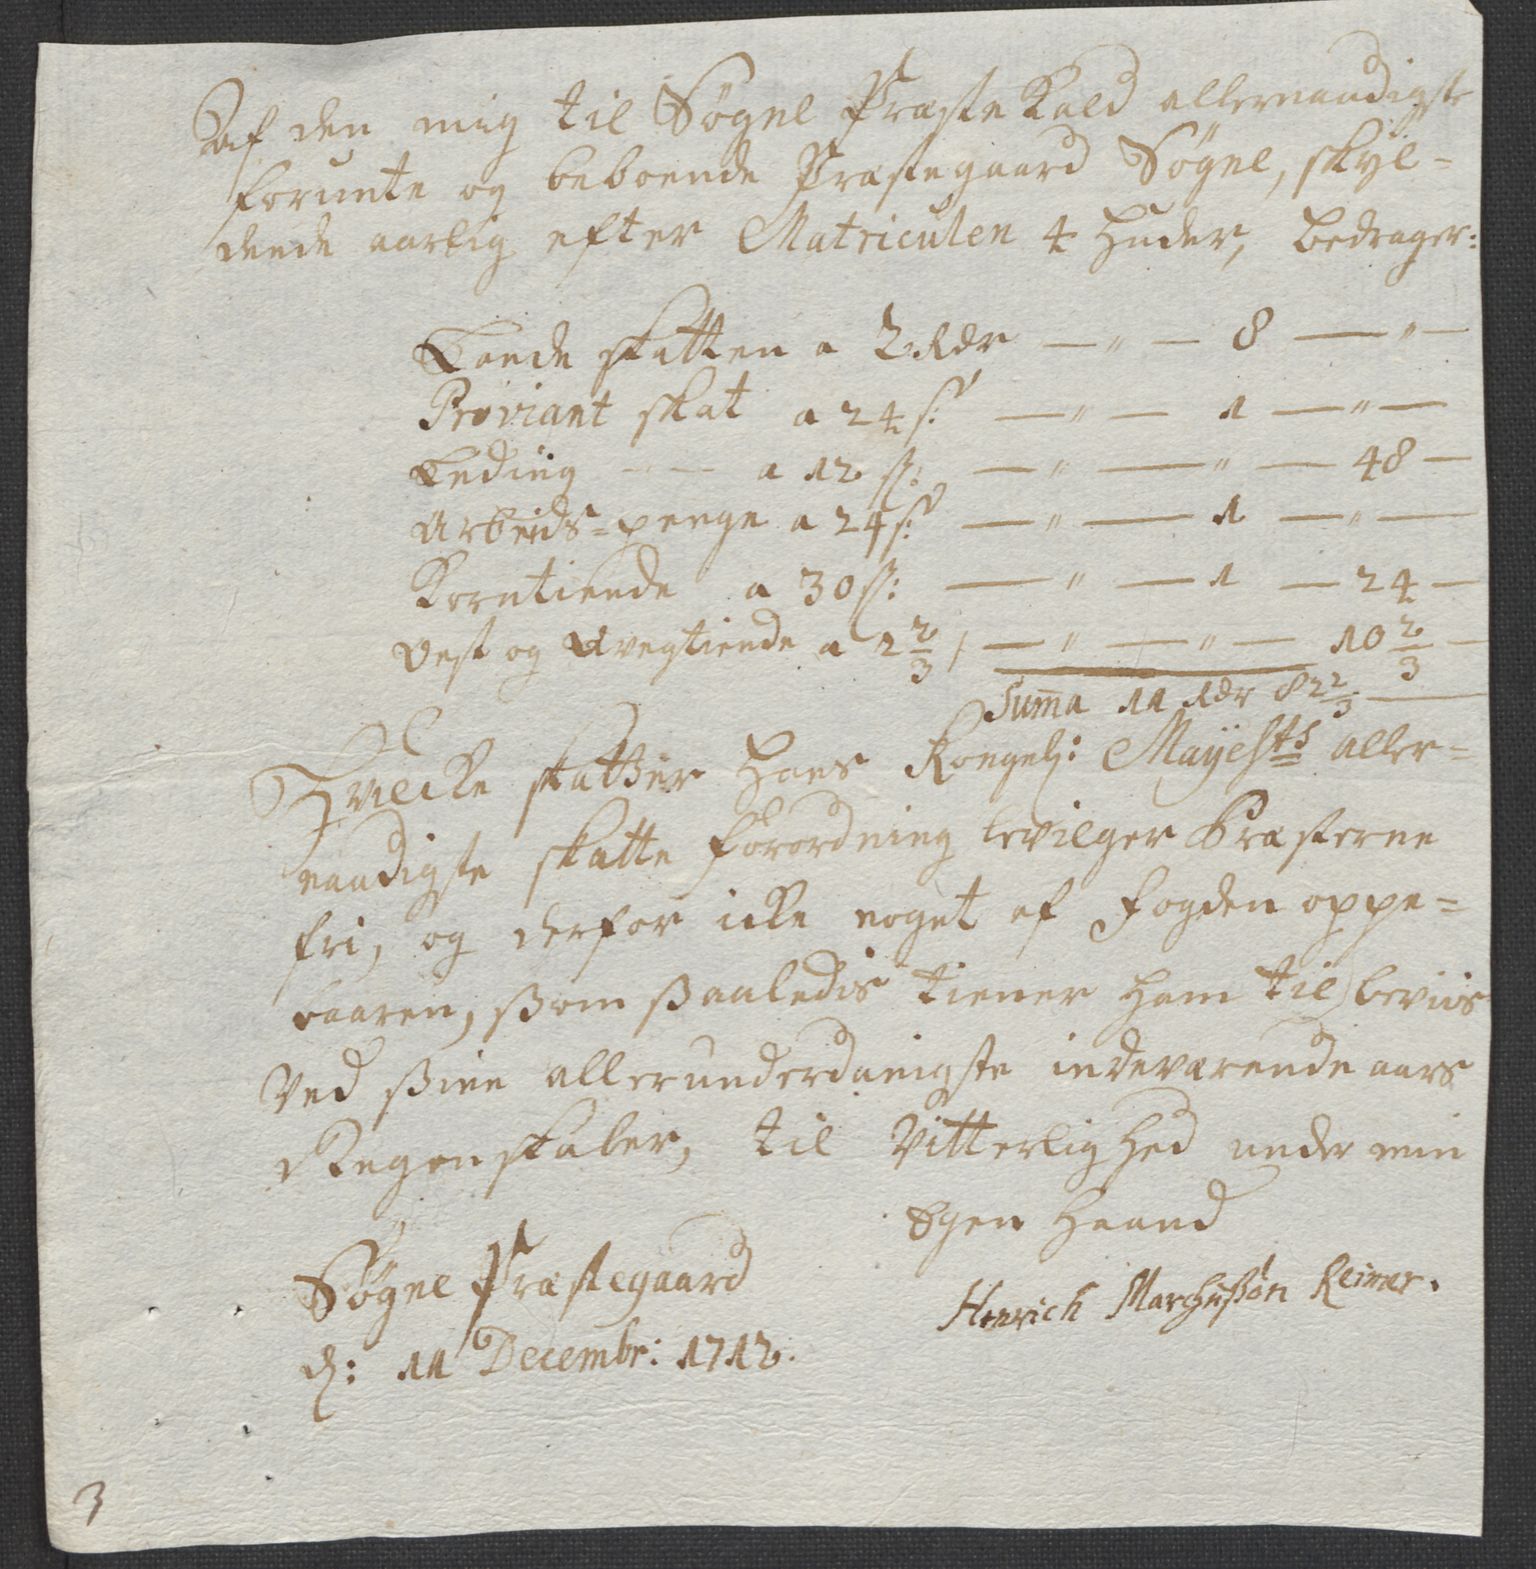 Aaf den mig til Søgne Præste Kald allernaadigst
forunte og beboende Præstegaard Søgne, skyl-
dende aarlig efter Matriculen 4 Huder, bedrager:
Lande skatten a 2 Rdr — " — 8 — " —
Proviant skat a 24 s: — " — 1 — " —
Leding — — a 12 ß: — " — " — 48 —
Arbeids-penge a 24 s: — " — 1 — " —
Korntiende a 30 ß: — " — 1 — 24 —
Ost og Qvegtiende a 2 2/3 / — " — " — 10 2/3 —
Suma 11 Rdr 82 2/3 —
Hvilcke skatter Hans Kongel: Mayests aller-
naadigste skatte forordning bevilger Præsterne
fri, og derfor icke noget af Fogden oppe-
baaren, som saaledis tiener ham til beviis
Ved sine allerunderdanigste indeværende aars
Regenskaber, til Vitterlighed under min
Egen Haand
Søgne Præstegaard
d: 11 Decembr: 1712.
Henrich Marchussøn Reimer.
3